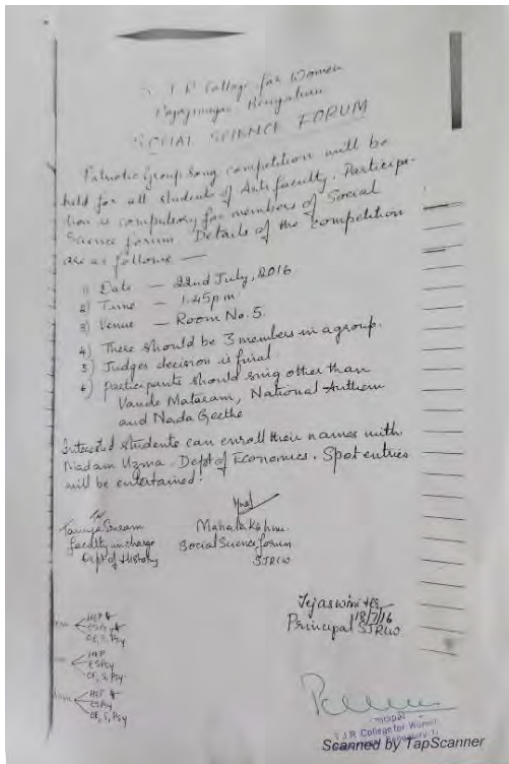 S J R College for Women
Rajajinagar, Bengaluru
SOCIAL SCIENCE FORUM
Patriotic Group Song competition will be
held for all students of Arts faculty. Participa-
tion is compulsory for members of Social
Science forum. Details of the competition
are as follows —
1) Date — 22nd July, 2016
2) Time — 1.45pm
3) Venue — Room No. 5.
4) There should be 3 members in a group.
5) Judges decision is final
6) Participants should sing other than
Vande Mataram, National Anthem
and Nada Geethe
Interested students can enroll their names with
Madam Uzma. Dept of Economics. Spot entries
will be entertained.
faculty incharge
Dept of History
Mahalakshmi
Social Science forum
SJRCW
Tejaswini
18/7/16
Principal SJRCW
HEP
ESPsy
OE, S, Psy
HEP
ESPsy
OE, S, Psy
HEP
ESPsy
OE, S, Psy
S.J.R. College for Women
Scanned by TapScanner